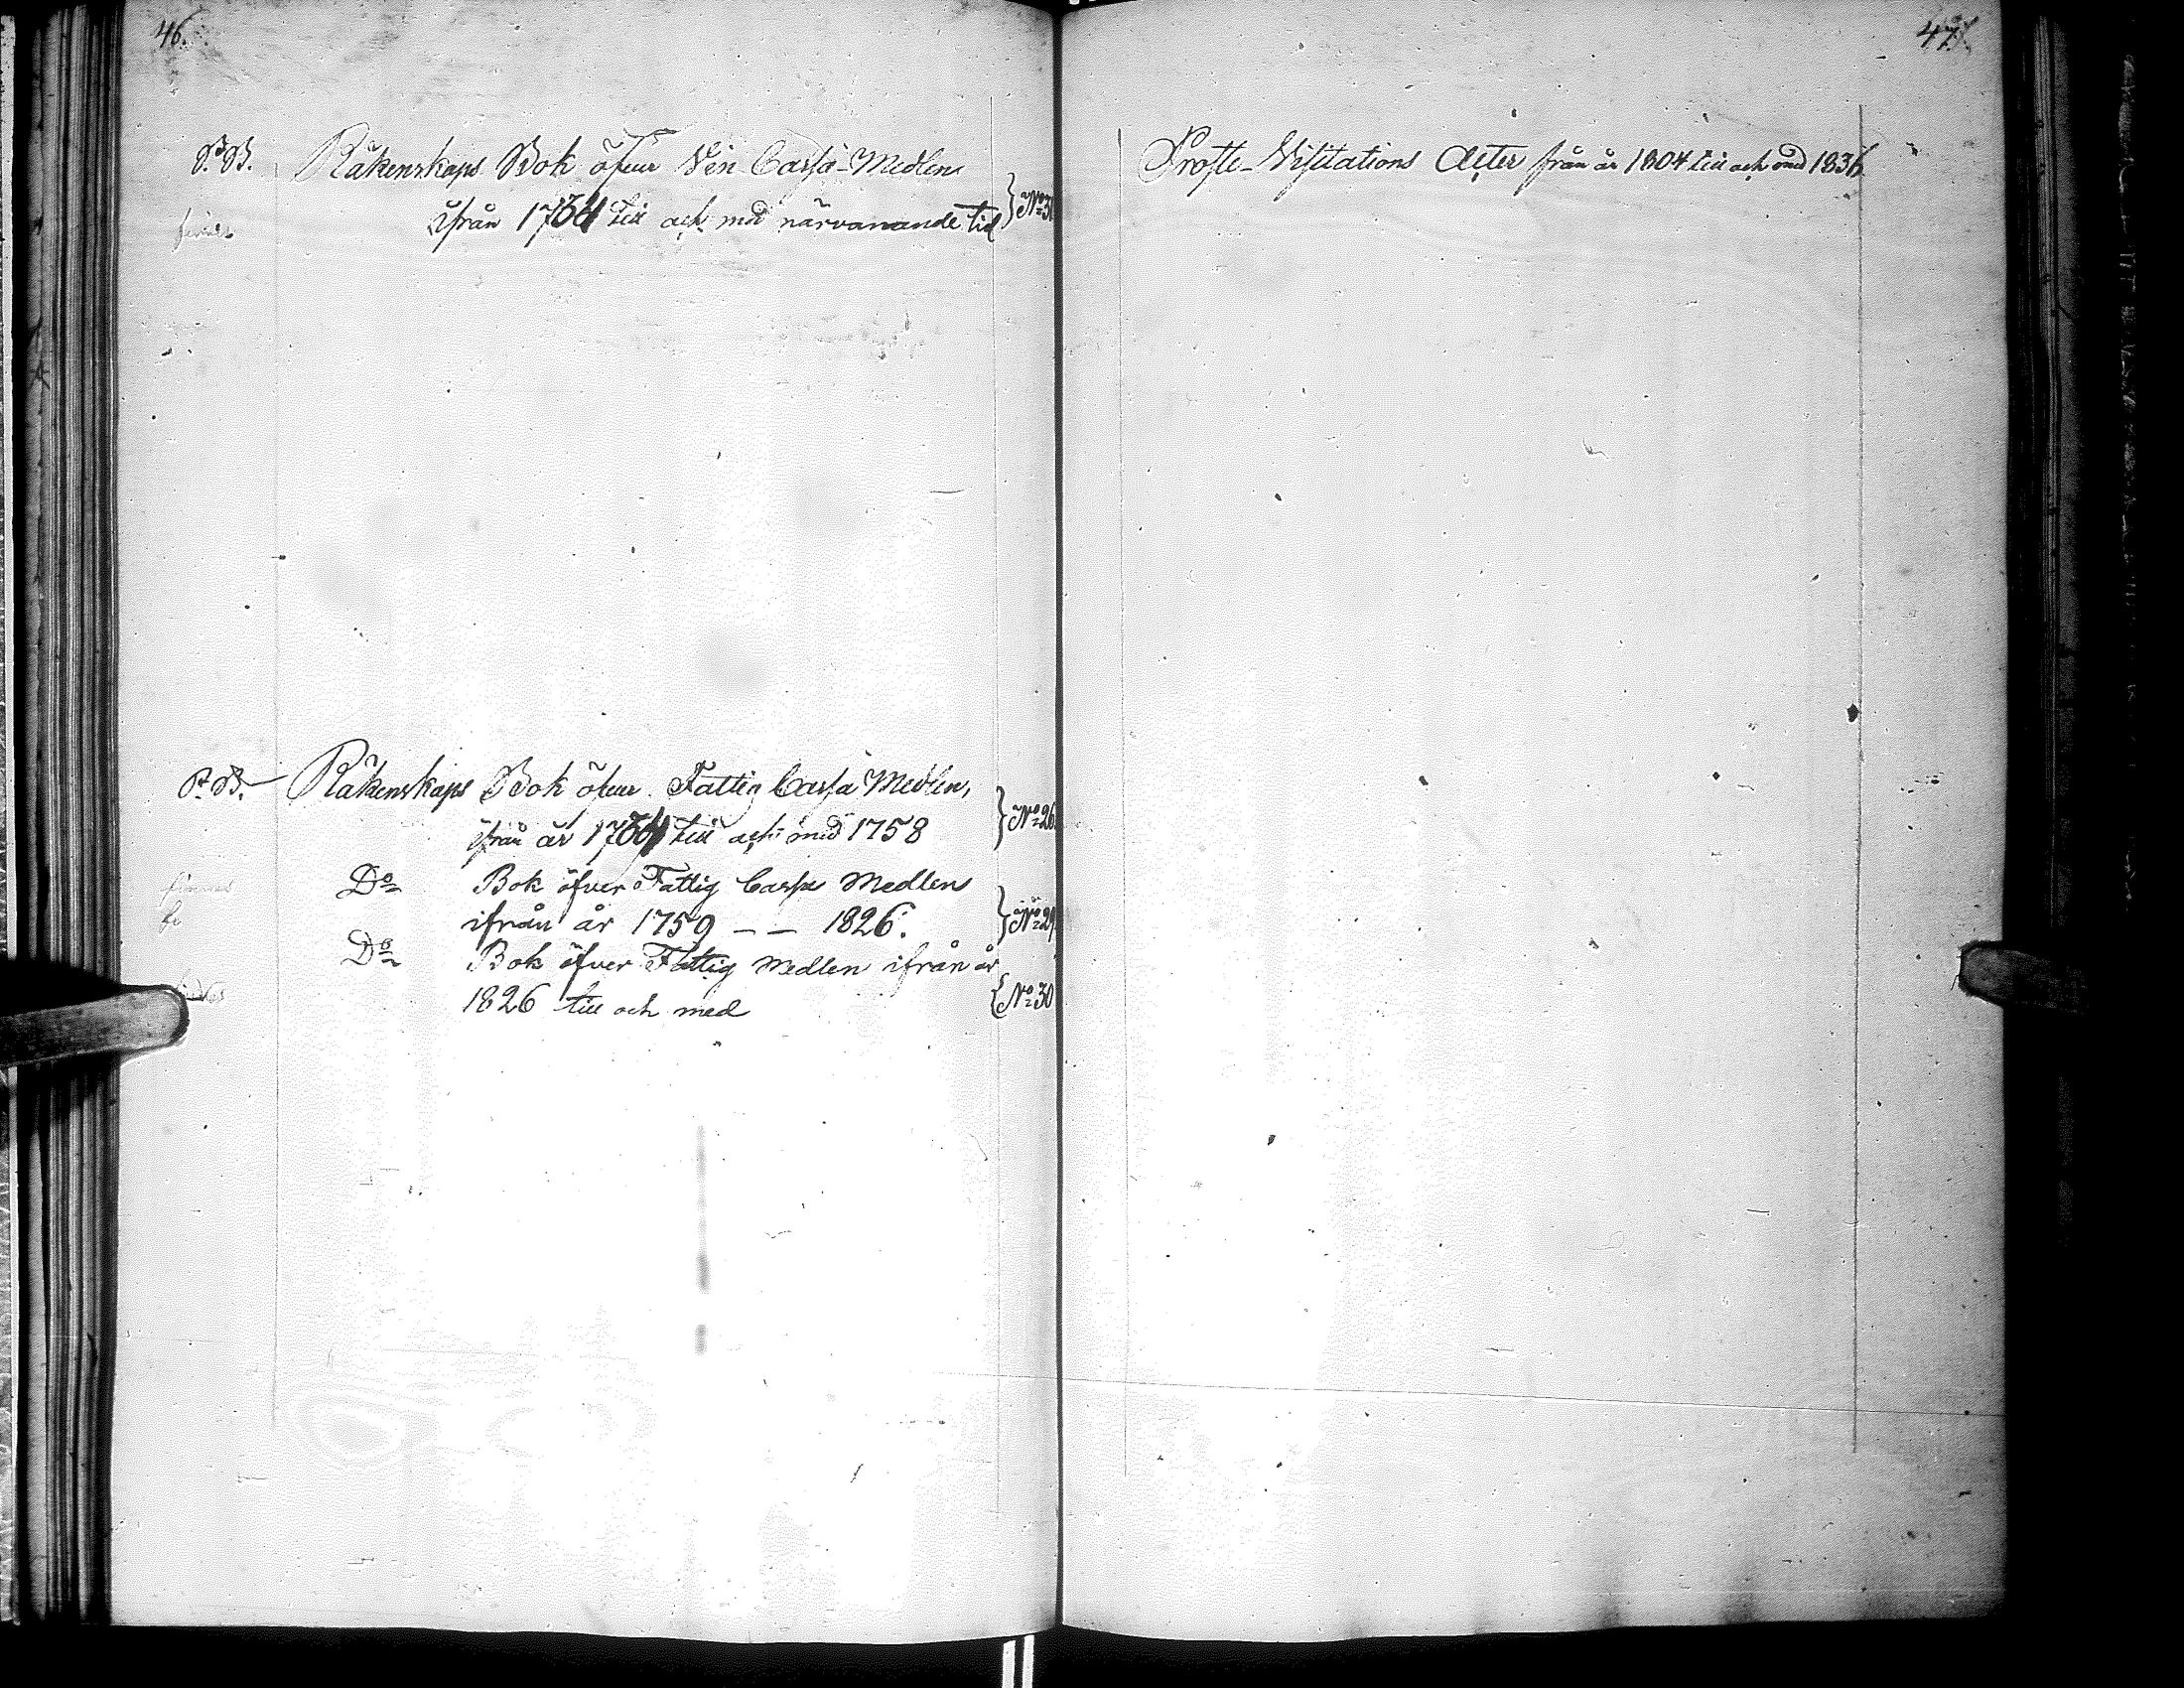 46.
P. B. Räkenskaps Bok öfver Vin Cassa-Medlen
ifrån till och med närvarande tid } No 31
finnes
P. B. Räkenskaps Bok öfver Fattig Cassa Medlen,
ifrån år till och med 1758 } No 26.
Do Bok öfver Fattig Cassa Medlen
finnes
ifrån år 1759 – – 1826. } No 29
Do Bok öfver Fattig Medlen ifrån år
1826 till och med { No 30
47.
Proste-Visitations Acter från år 1804 till och med 1836